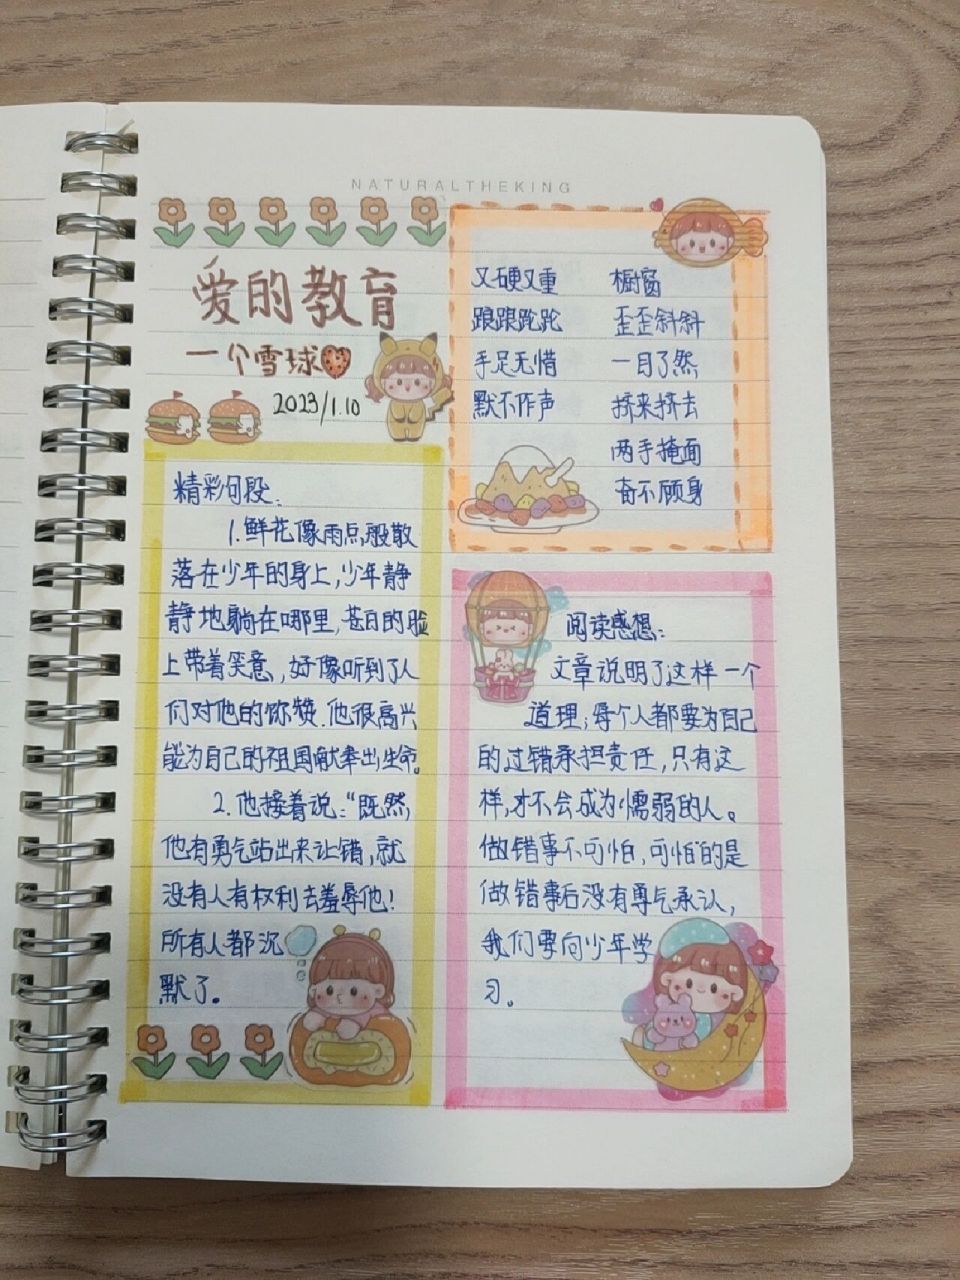 NATURALTHEKING
爱的教育
一个雪球
2023/1.10
精彩句段：
1.鲜花像雨点般散
落在少年的身上,少年静
静地躺在哪里,苍白的脸
上带着笑意,好像听到了人
们对他的称赞.他很高兴
能为自己的祖国献奉出生命。
2.他接着说：“既然,
他有勇气站出来让错,就
没有人有权利去羞辱他!
所有人都沉
默了。
又硬又重 橱窗
踉踉跄跄 歪歪斜斜
手足无惜 一目了然
默不作声 挤来挤去
两手掩面
奋不顾身
阅读感想：
文章说明了这样一个
道理;每个人都要为自己
的过错承担责任,只有这
样,才不会成为懦弱的人。
做错事不可怕,可怕的是
做错事后没有勇气承认,
我们要向少年学
习。